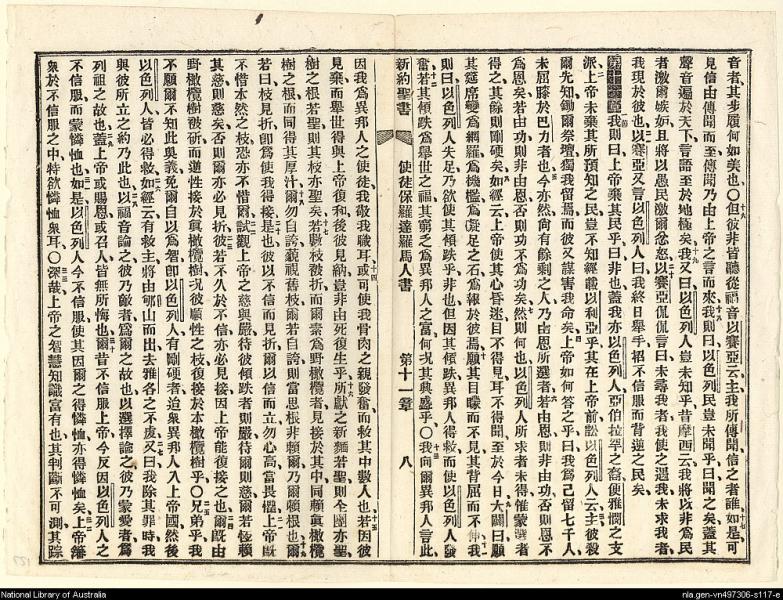 音者其步履何如美也〇但彼非皆聽從福音以賽亞云主我所傳聞信之者誰如是可
見信由傳聞而至傳聞乃由上帝之言而來我則曰以色列民豈未聞乎曰聞之矣蓋其
聲音遍於天下言語至於地極矣我又曰以色列人豈未知乎昔摩西云我將以非爲民
者激爾嫉妬且將以愚民激爾忿怒以賽亞侃侃言曰未尋我者我使之遇我未求我者
我現於彼也以賽亞又言以色列人曰我終日舉手招不信服而背逆之民矣
第十一章我則曰上帝棄其民乎曰非也蓋我亦以色列人亞伯拉罕之裔便雅憫之支
派上帝未棄其所預知之民豈不知經載以利亞乎其在上帝前訟以色列人云主彼殺
爾先知鋤爾祭壇獨我留焉而彼又謀害我命矣上帝如何答之乎曰我爲己留七千人
未屈膝於巴力者也今亦然尙有餘剩之人乃由恩所選者若由恩則非由功否則恩不
爲恩矣若由功則非由恩否則功不爲功矣然則何也以色列人所求者未得惟蒙選者
得之其餘則剛硬矣如經云上帝使其心昏迷目不得見耳不得聞至於今日大闢曰願
其筵席變爲網羅爲機檻爲礙足之石爲報於彼焉願其目矇而不見其背屈而不伸我
則曰以色列人失足乃欲使其傾跌乎非也但因其傾跌異邦人得救而使以色列人發
奮若其傾跌爲舉世之福其窮乏爲異邦人之富何况其興盛乎〇我向爾異邦人言此
新約聖書 使徒保羅達羅馬人書 第十一章 八
因我爲異邦人之使徒我敬我職耳或可使我骨肉之親發奮而救其中數人也若因彼
見棄而舉世得與上帝復和後彼見納豈非由死復生乎所獻之新麵若聖則全團亦聖
樹之根若聖則其枝亦聖矣若數枝被折而爾素爲野橄欖者見接於其中同願眞橄欖
樹之根而同得其厚汁爾勿自誇藐視舊枝爾若自誇則當思根非賴爾乃爾賴根也爾
若曰枝見折卽爲使我得接是也彼以不信而見折爾以信而立勿心高當畏懼上帝旣
不惜本然之枝恐亦不惜爾試觀上帝之慈與嚴待彼傾跌者則嚴待爾則慈爾若恆賴
其慈則慈矣否則爾亦必見折彼若不久於不信亦必見接因上帝能復接之也爾旣由
野橄欖樹被斫而逆性接於眞橄欖樹况彼順性之枝復接於本橄欖樹乎〇兄弟乎我
不願爾不知此奧義免爾自以爲智卽以色列人有剛硬者迨衆異邦人入上帝國然後
以色列人皆必得救如經云有救主將由郇山而出去雅各之不虔又曰我除其罪時我
與彼所立之約乃此也以福音論之彼乃敵者爲爾之故也以選擇論之彼乃蒙愛者爲
列祖之故也蓋上帝或賜恩或召人皆無所悔也爾昔不信服上帝今反因以色列人之
不信服而蒙憐恤也如是以色列人今不信服使其因爾之得憐恤亦得憐恤矣上帝籓
衆於不信服之中特欲憐恤衆耳〇深哉上帝之智慧知識富有也其判斷不可測其踪
National Library of Australia
nla.gen-vn497306-s117-e